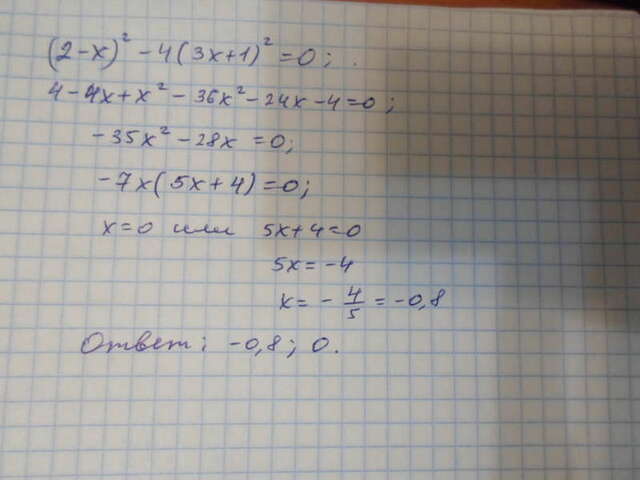 (2-x)² - 4(3x+1)² = 0;
4 - 4x + x² - 36x² - 24x - 4 = 0;
-35x² - 28x = 0;
-7x(5x+4) = 0;
x = 0 или 5x+4 = 0
5x = -4
x = - 4/5 = -0,8
Ответ: -0,8; 0.